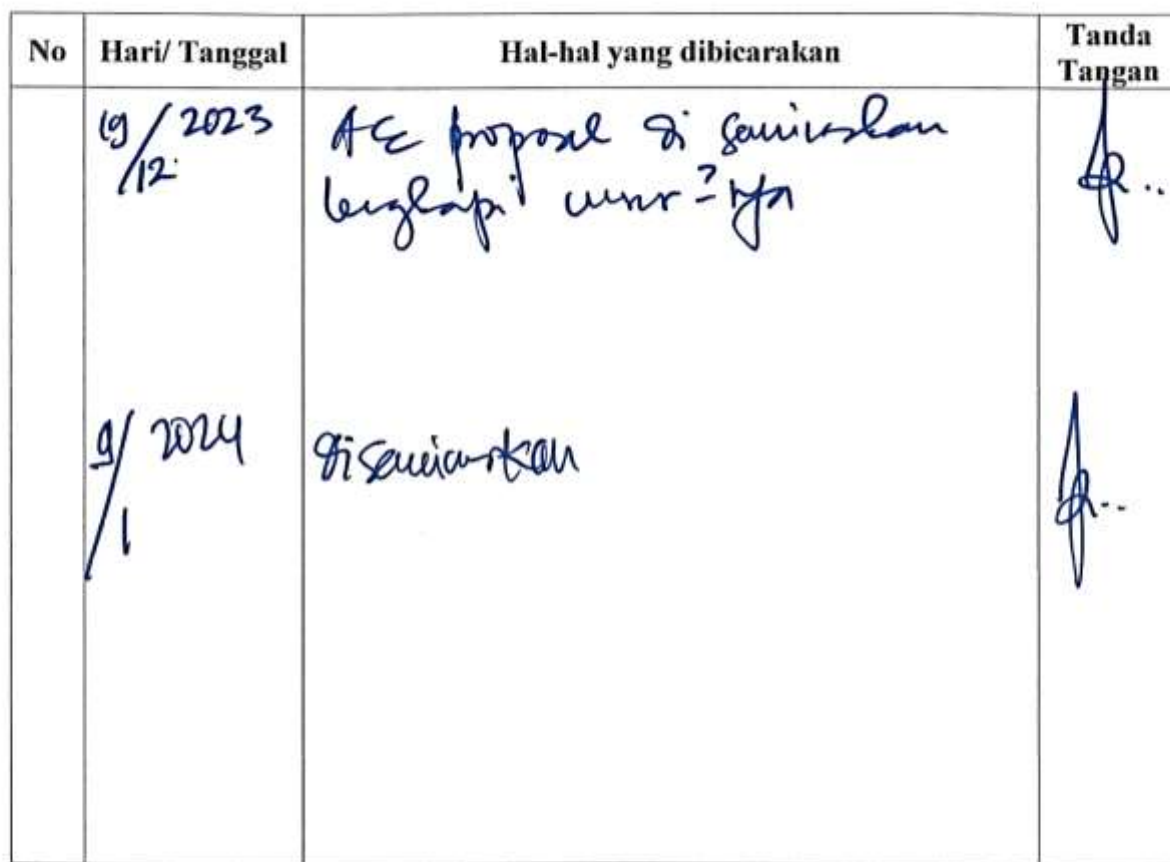 No Hari/ Tanggal Hal-hal yang dibicarakan Tanda Tangan
19/12 2023 Acc proposal di seminarkan
lengkapi -nya
9/1 2024 diseminarkan